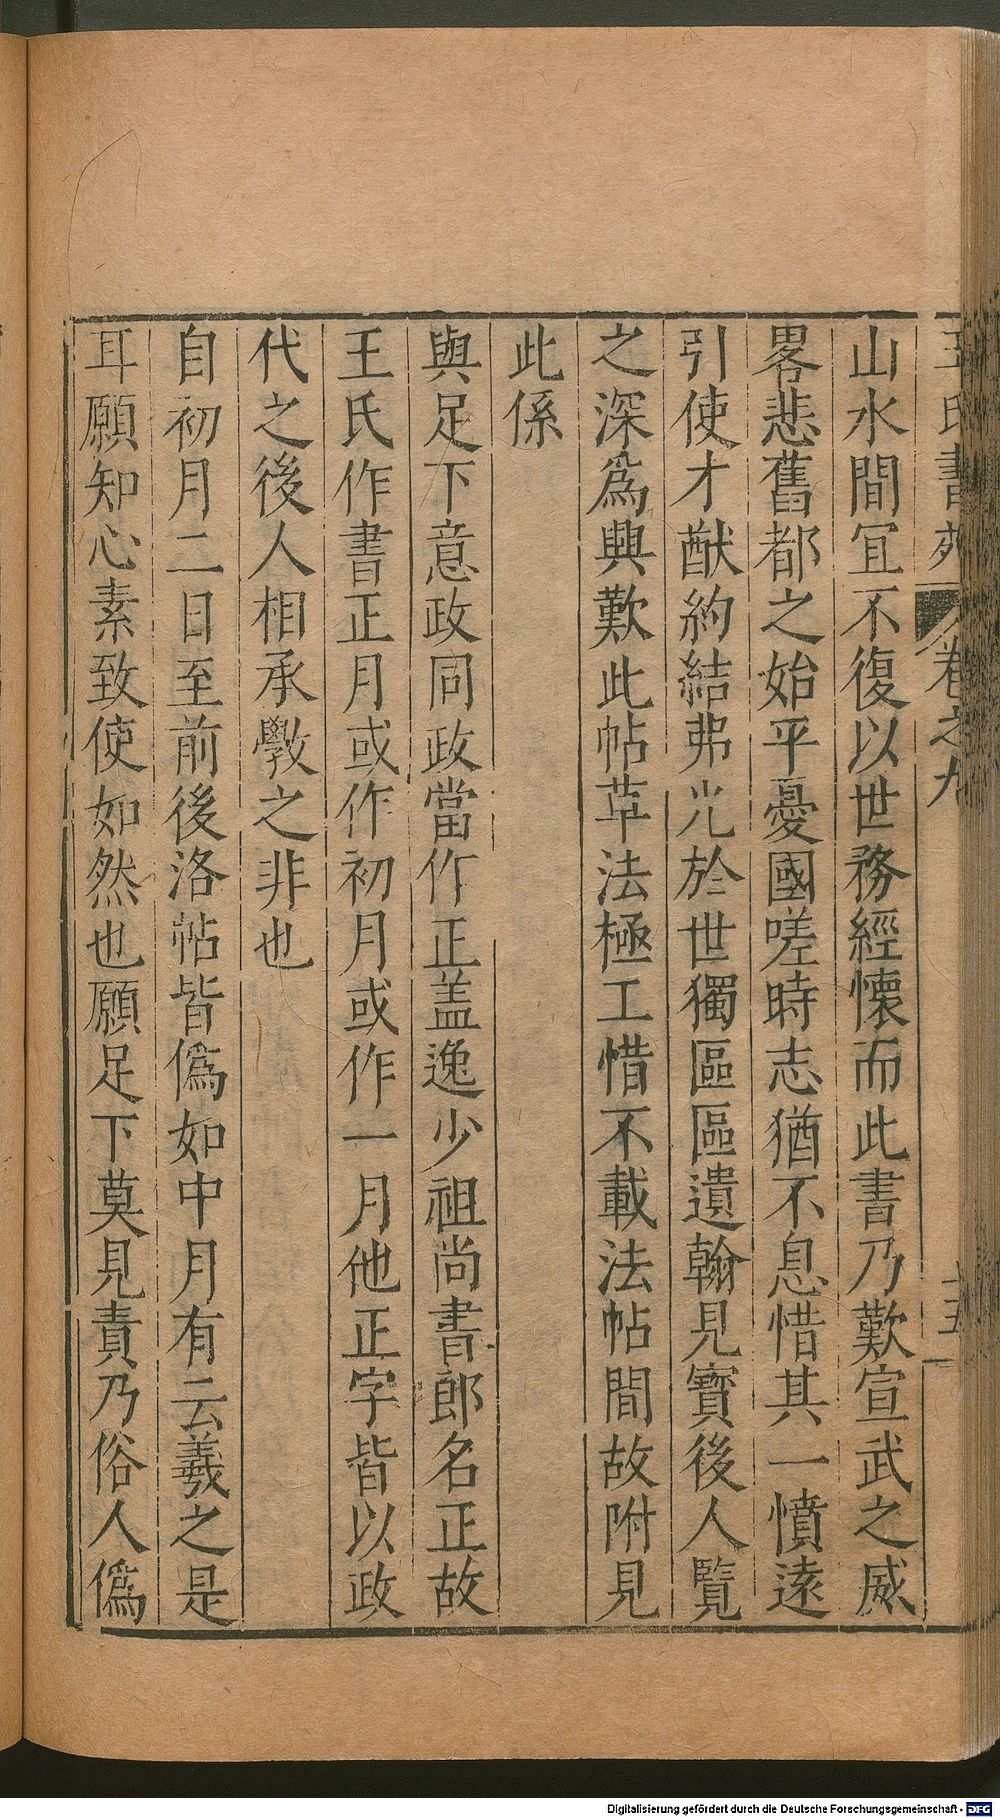 王氏書苑 卷之九 十五
山水間宜不復以世務經懷而此書乃歎宣武之威
畧悲舊都之始平憂國嗟時志猶不息惜其一憤遠
引使才猷約結弗光於世獨區區遺翰見寳後人覽
之深爲興歎此帖草法極工惜不載法帖間故附見
此係
與足下意政同政當作正盖逸少祖尚書郎名正故
王氏作書正月或作初月或作一月他正字皆以政
代之後人相承斆之非也
自初月二日至前後洛帖皆僞如中月有云羲之是
耳願知心素致使如然也願足下莫見責乃俗人僞
Digitalisierung gefördert durch die Deutsche Forschungsgemeinschaft - DFG